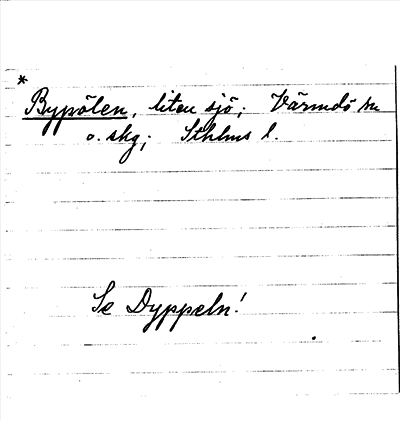 *
Bypölen, liten sjö; Värmdö sn
o. skg; Sthlms l.
Se Dyppeln!